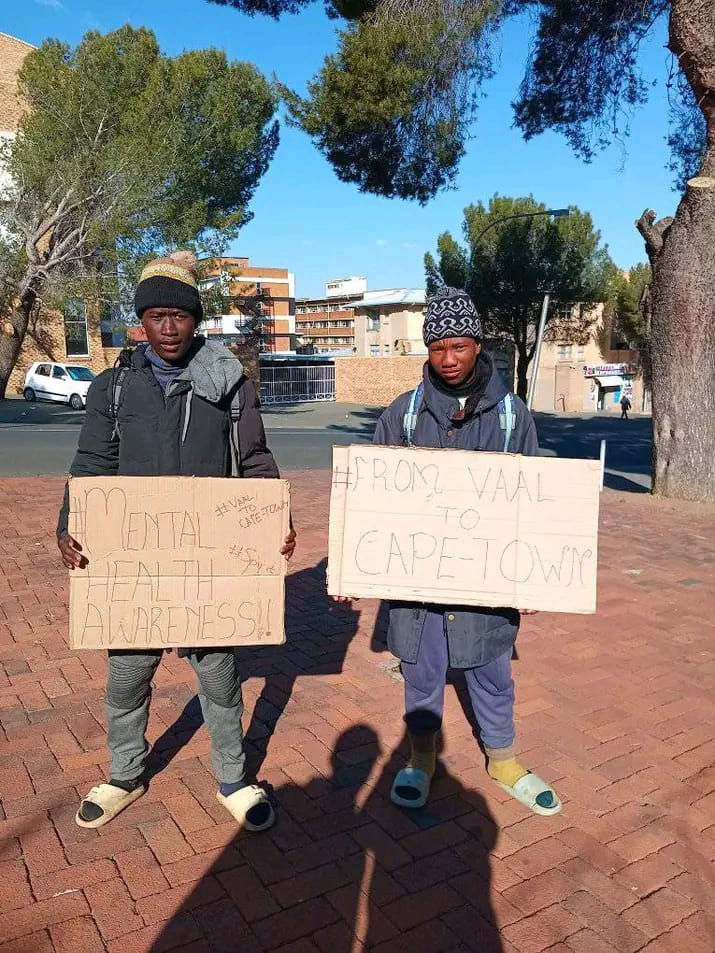 #MENTAL
HEALTH
AWARENESS!!
#VAAL
TO
CAPE-TOWN
#FROM VAAL
TO
CAPE-TOWN